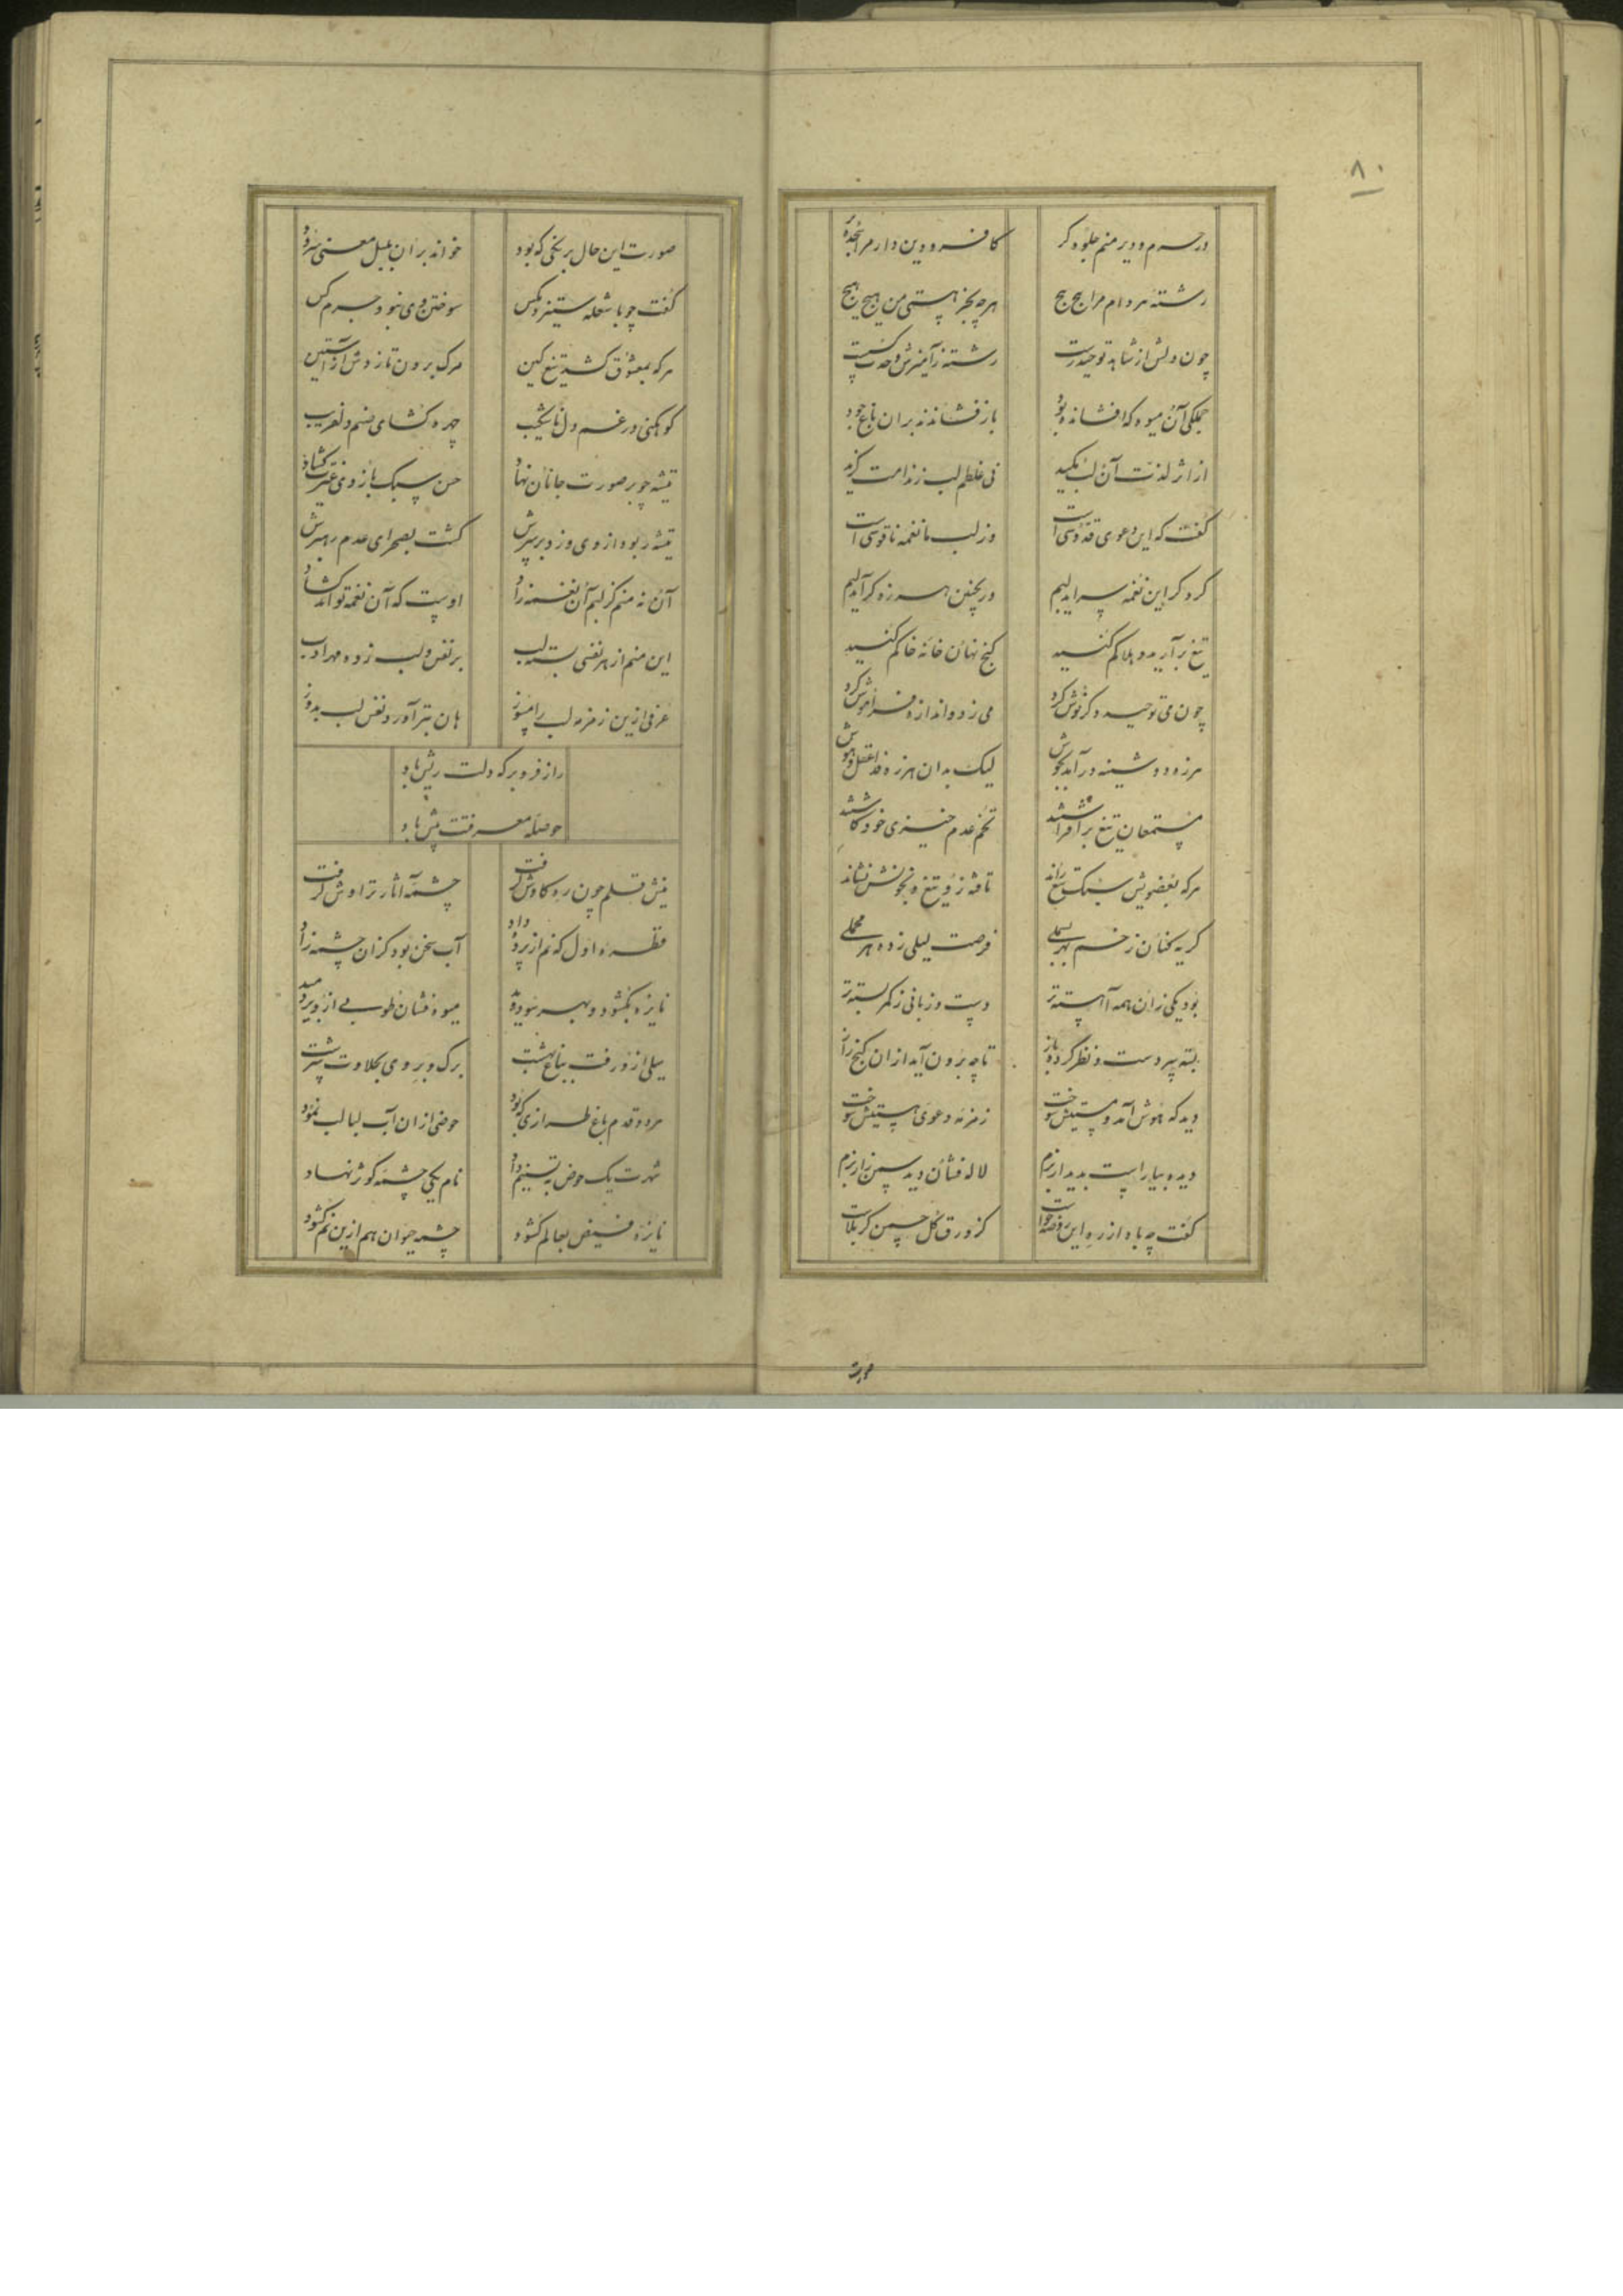 ۸۰
در حرم و دیر منم جلوه گر
کافر و دین دار مرا سجده بر
رشته هر دام مرا پیچ پیچ
هر چه بجز هستی من هیچ هیچ
چون دلش از شاهد توحید رست
رشته ز آمیزش وحدت گسست
جملگی آن میوه که افشانده بود
باز فشاندند بران باغ جود
از اثر لذت آن لب مکید
نی غلطم لب ز ندامت گزید
گفت که این دعوی قدوسی است
وز لب ما نغمه ناقوسی است
کرد گر این نغمه سراید لبم
ور بچنین هرزه گر آید لبم
تیغ برآرید و هلاکم کنید
گنج نهان خانه خاکم کنید
چون می توحید دگر نوش کرد
می زد و اندازه فراموش کرد
هرزه دوشینه در آمد بجوش
لیک بدان هرزه فدا عقل و هوش
مستمعان تیغ برافراشتند
تخم عدم خیزی خود کاشتند
هر که بعضویش سبک تیغ راند
تافته زو تیغ و بخونش نشاند
گریه کنان زخم بهر بسملی
فرصت لیلی زده هر محملی
بود یکی زان همه آهسته تر
دست و زبانی ز کمر بسته تر
بسته سپر دست و نظر کرده باز
تا چه برون آید از ان گنج راز
دید که هوش آمد و مستیش سوخت
زمزمه دعوی هستیش سوخت
دیده بیاراست بدیدار بزم
لاله فشان دید سمن زار بزم
گفت چه باد از ره این روضه خواست
کز ورق گل چمن کربلاست
صورت
صورت این حال برنجی که بود
خواند بر ان بلبل معنی سرود
گفت چو با شعله ستیزد مگس
سوختن وی نبود جرم کس
هر که بمعشوق کشد تیغ کین
مرگ برون تازدش از آستین
کوهکنی در غم دل ناشکیب
چهره گشای صنم دلفریب
تیشه چو بر صورت جانان نهاد
حسن سبک بازوی غیرت گشاد
تیشه ربود از وی و زد بر سرش
گشت بصحرای عدم رهبرش
آن نه منم کز لبم آن نغمه زاد
اوست که آن نغمه تواند گشاد
این منم از هر نفسی بسته لب
بر نفس و لب زده مهر ادب
عرفی ازین زمزمه لب را بسوز
هان بتر آورد نفس لب بدوز
راز فرو بر که دلت ریش باد
حوصله معرفتت بیش باد
نیش قلم چون ره کاوش گرفت
چشمه آثار تراوش گرفت
قطره اول که نم از پرده داد
آب سخن بود کزان چشمه زاد
نایزه بگشود و بهر سو دوید
میوه فشان طوبی از و بر دمید
سیلی از و رفت بباغ بهشت
برگ و بر وی بحلاوت سرشت
مرد و قدم باغ طرازی که بود
حوضی از ان آب لبالب نمود
شهرت یک حوض به تسنیم داد
نام یکی چشمه کوثر نهاد
نایزه فیض بعالم گشود
چشمه حیوان هم ازین نم گشود